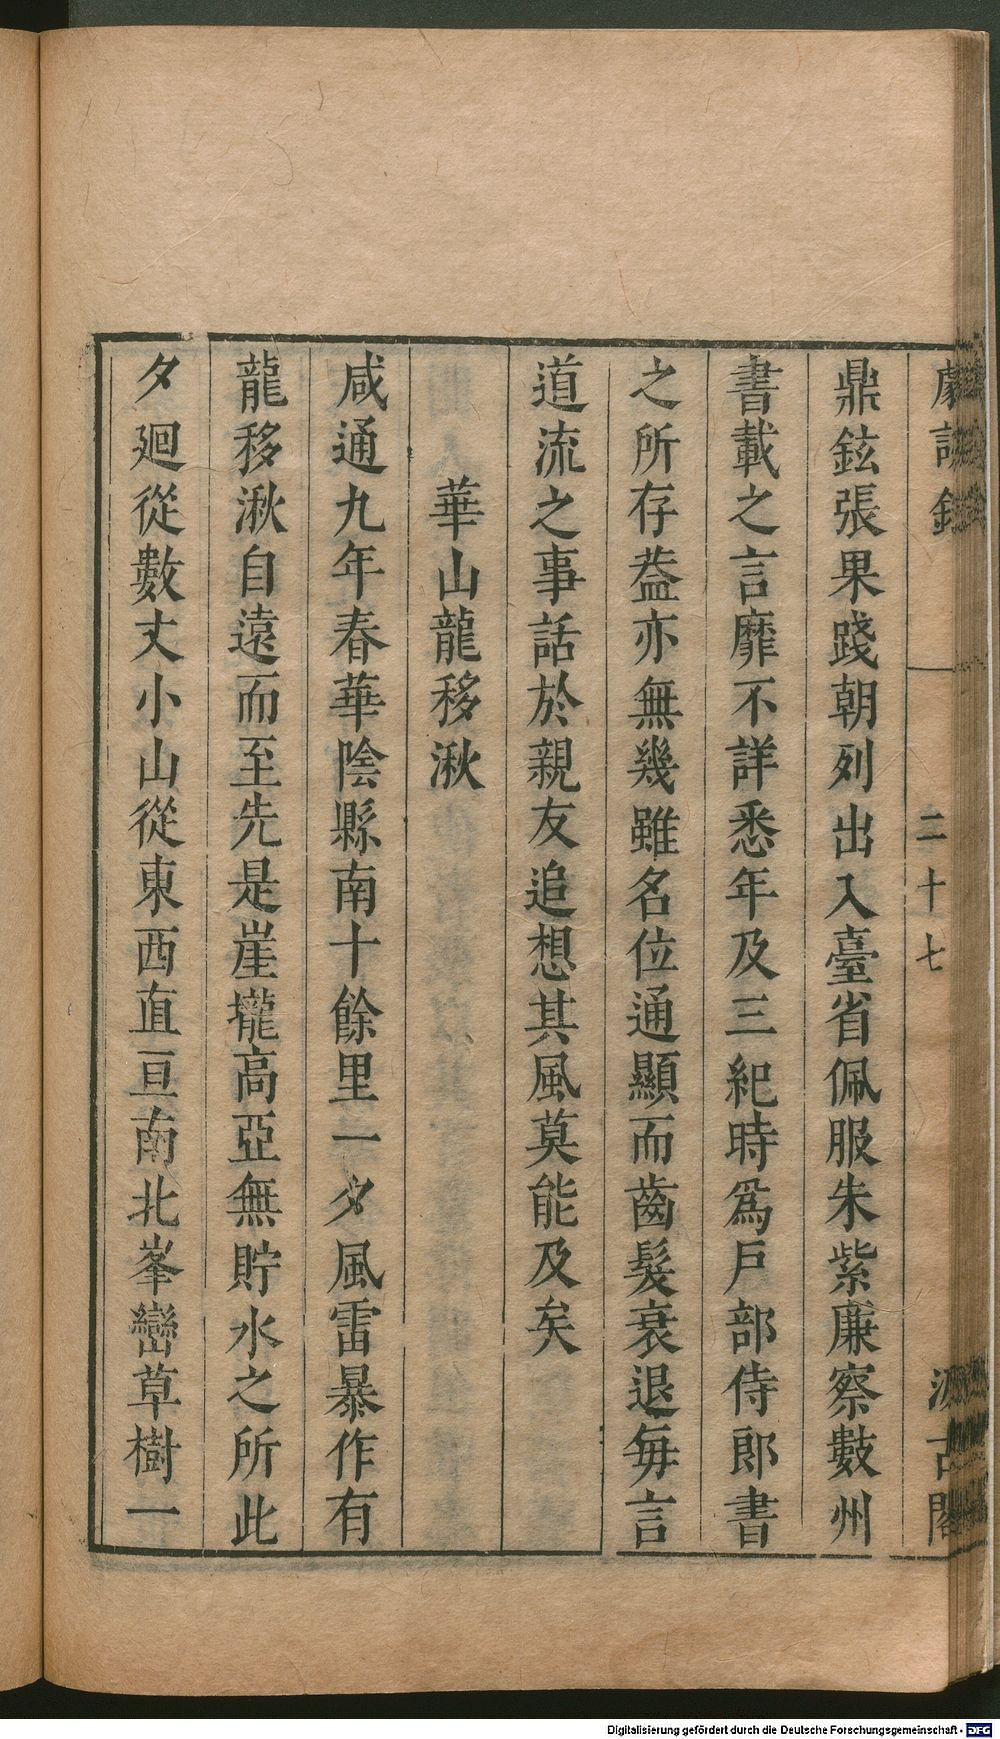 劇談錄
二十七
汲古閣
鼎鉉張果踐朝列出入臺省佩服朱紫廉察數州
書載之言靡不詳悉年及三紀時爲戶部侍郎書
之所存葢亦無幾雖名位通顯而齒髮衰退每言
道流之事話於親友追想其風莫能及矣
華山龍移湫
咸通九年春華陰縣南十餘里一夕風雷暴作有
龍移湫自遠而至先是崖壠高亞無貯水之所此
夕廻從數丈小山從東西直亘南北峯巒草樹一
Digitalisierung gefördert durch die Deutsche Forschungsgemeinschaft - DFG